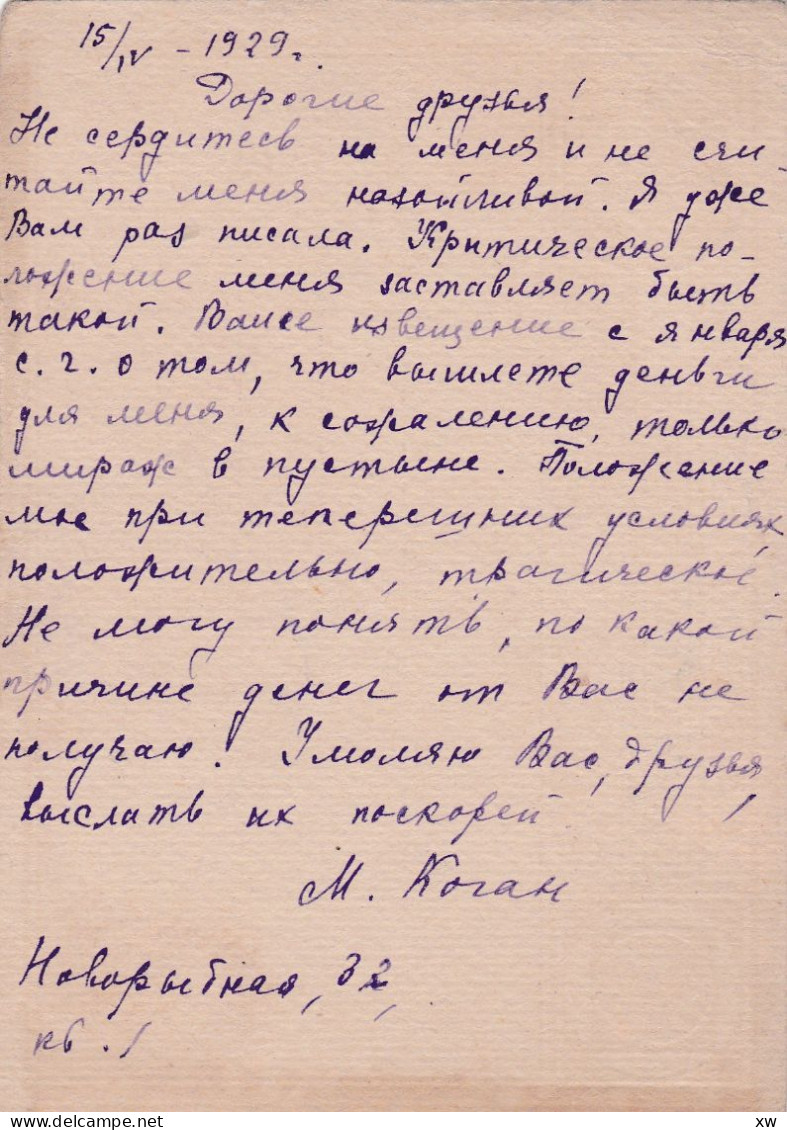 15/IV – 1929.
Дорогие друзья!
Не сердитесь на меня и не счи-
тайте меня назойливой. Я уже
Вам раз писала. Критическое по-
ложение меня заставляет быть
такой. Ваше извещение с января
с. г. о том, что вышлете деньги
для меня, к сожалению, только
мираж в пустыне. Положение
мое при теперешних условиях,
положительно, трагическое.
Не могу понять, по какой
причине денег от Вас не
получаю! Умоляю Вас, друзья,
выслать их поскорей!
М. Коган
Новорыбная, 32,
кв. 1
xw